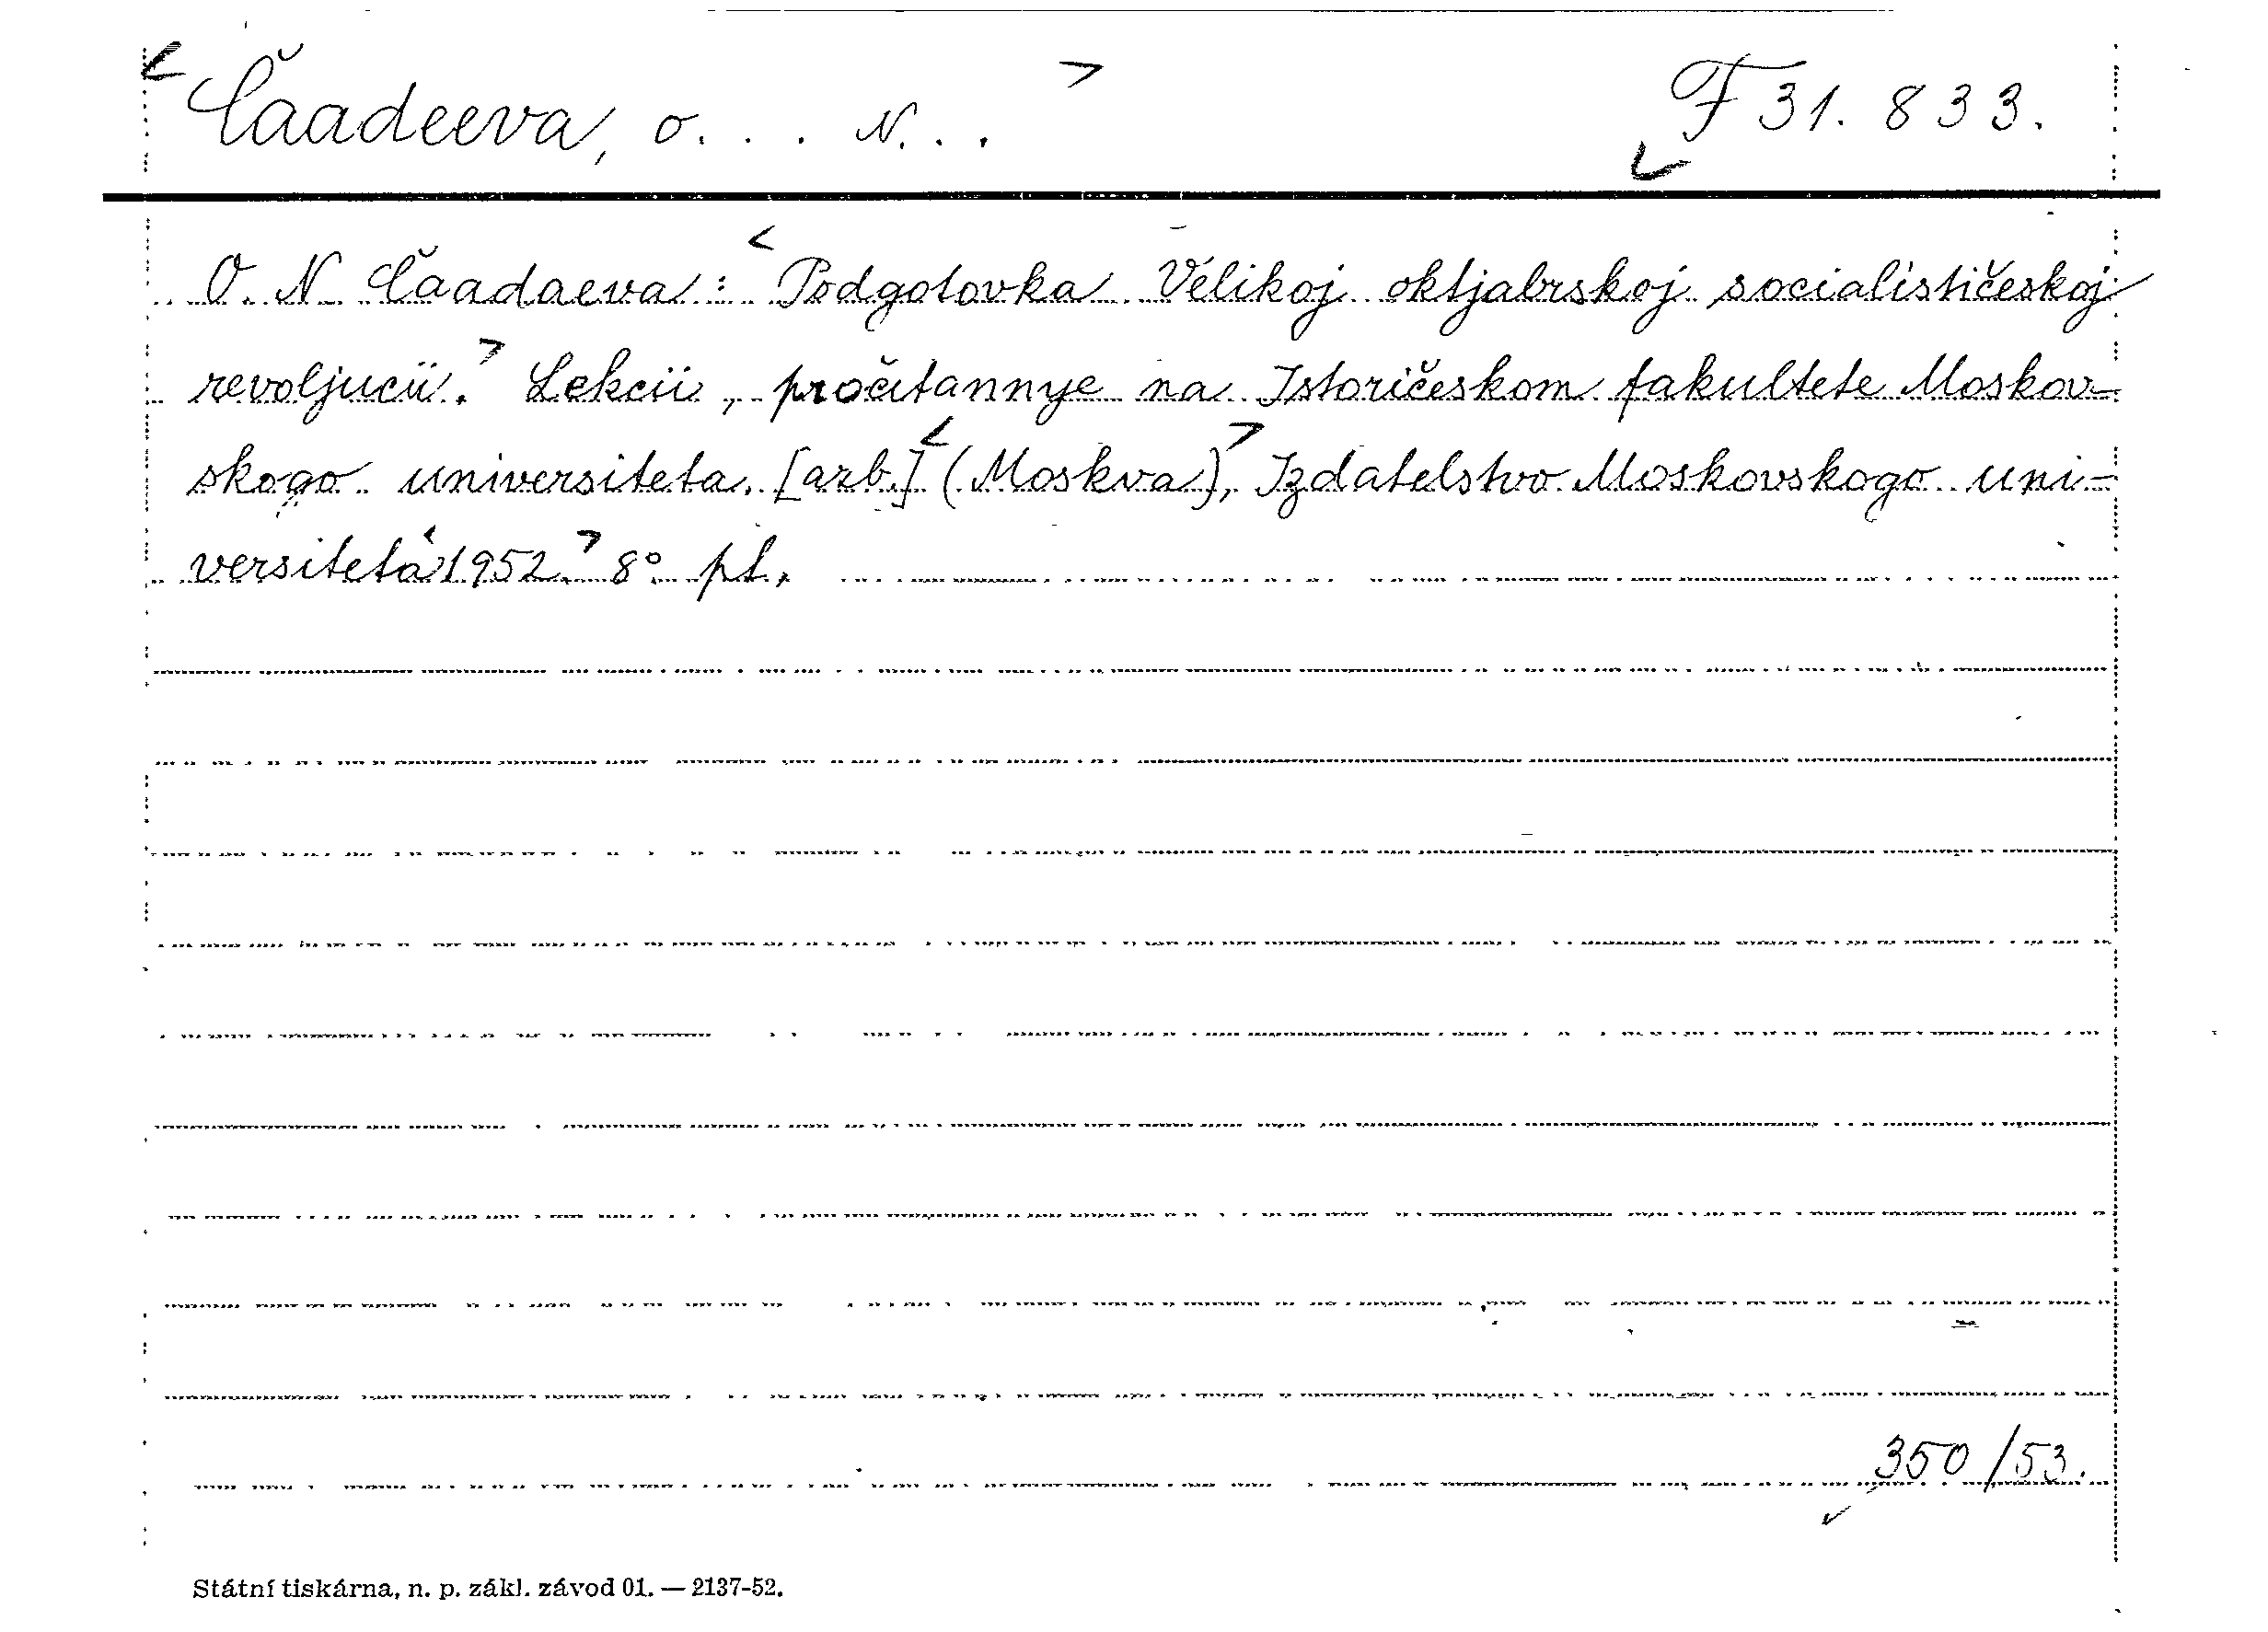 < Čaadeeva, O. . . N. . . >
F 31. 833.
O. N. Čaadaeva: < Podgotovka Velikoj oktjabrskoj socialističeskoj
revoljucii. > Lekcii, pročitannye na Istoričeskom fakultete Moskov-
skogo universiteta. [azb.] < (Moskva), > Izdatelstvo Moskovskogo uni-
versiteta < 1952. > 8° pt.
350/53.
Státní tiskárna, n. p. zákl. závod 01. — 2137-52.